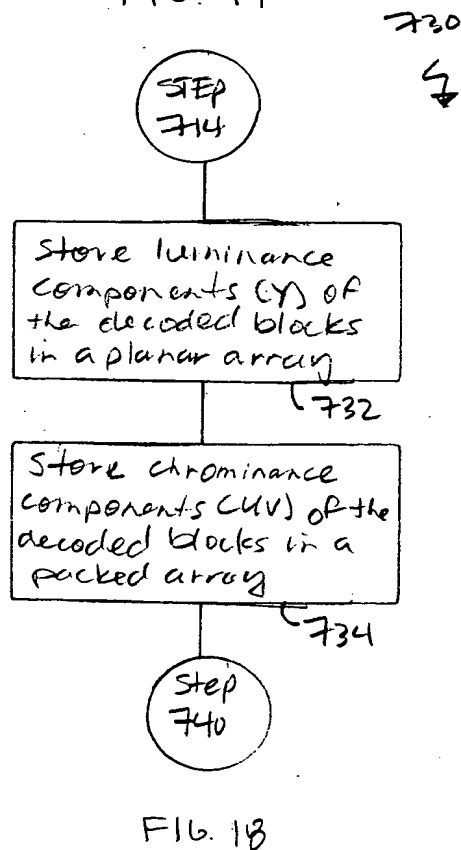 730
STEP
714
Store luminance
components (Y) of
the decoded blocks
in a planar array
732
Store chrominance
components (UV) of the
decoded blocks in a
packed array
734
Step
740
FIG. 18